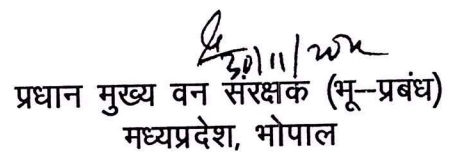 30/11/
प्रधान मुख्य वन संरक्षक (भू--प्रबंध)
मध्यप्रदेश, भोपाल